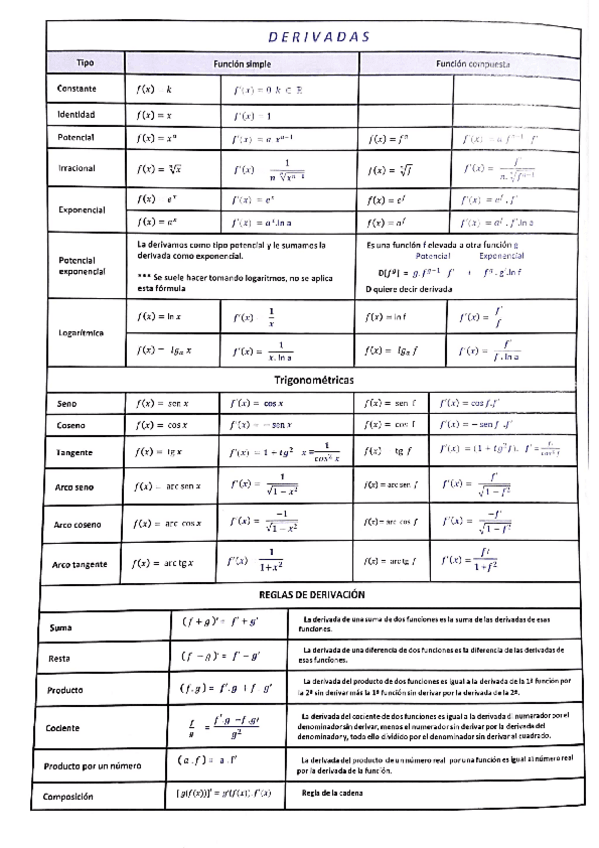 DERIVADAS
Tipo Función simple Función compuesta
Constante f(x) = k f'(x) = 0 k ∈ ℝ
Identidad f(x) = x f'(x) = 1
Potencial f(x) = xⁿ f'(x) = n xⁿ⁻¹ f(x) = fⁿ f'(x) = n fⁿ⁻¹ f'
Irracional f(x) = ⁿ√x f'(x) 1/(n ⁿ√xⁿ⁻¹) f(x) = ⁿ√f f'(x) = f'/(n. ⁿ√fⁿ⁻¹)
Exponencial f(x) eˣ f'(x) = eˣ f(x) = e^f f'(x) = e^f . f'
f(x) = aˣ f'(x) = aˣ.ln a f(x) = a^f f'(x) = a^f . f'.ln a
Potencial exponencial
La derivamos como tipo potencial y le sumamos la
derivada como exponencial.
*** Se suele hacer tomando logaritmos, no se aplica
esta fórmula
Es una función f elevada a otra función g
Potencial Exponencial
D[f^g] = g. f^(g-1) f' + f^g . g'.ln f
D quiere decir derivada
Logarítmica f(x) = ln x f'(x) 1/x f(x) = ln f f'(x) = f'/f
f(x) = lgₐ x f'(x) = 1/(x. ln a) f(x) = lgₐ f f'(x) = f'/(f . ln a)
Trigonométricas
Seno f(x) = sen x f'(x) = cos x f(x) = sen f f'(x) = cos f.f'
Coseno f(x) = cos x f'(x) = − sen x f(x) = cos f f'(x) = − sen f .f'
Tangente f(x) = tg x f'(x) = 1 + tg² x = 1/cos² x f(x) tg f f'(x) = (1 + tg² f). f' = f'/cos² f
Arco seno f(x) = arc sen x f'(x) = 1/√(1 − x²) f(x) = arc sen f f'(x) = f'/√(1 − f²)
Arco coseno f(x) = arc cos x f'(x) = −1/√(1 − x²) f(x) = arc cos f f'(x) = −f'/√(1 − f²)
Arco tangente f(x) = arc tg x f'(x) 1/(1+x²) f(x) = arc tg f f'(x) = f'/(1+f²)
REGLAS DE DERIVACIÓN
Suma (f + g)' = f' + g' La derivada de una suma de dos funciones es la suma de las derivadas de esas
funciones.
Resta (f − g)' = f' − g' La derivada de una diferencia de dos funciones es la diferencia de las derivadas de
esas funciones.
Producto (f .g) = f'.g + f g' La derivada del producto de dos funciones es igual a la derivada de la 1ª función por
la 2ª sin derivar más la 1ª función sin derivar por la derivada de la 2ª.
Cociente f/g = (f'.g −f .g')/g² La derivada del cociente de dos funciones es igual a la derivada di numerador por el
denominador sin derivar, menos el numerador sin derivar por la derivada del
denominador y, todo ello dividico por el denominador sin derivar al cuadrado.
Producto por un número (a .f) = a .f' La derivada del producto de un número real por una función es igual al número real
por la derivada de la función.
Composición [g(f(x))]' = g'(f(x)).f'(x) Regla de la cadena